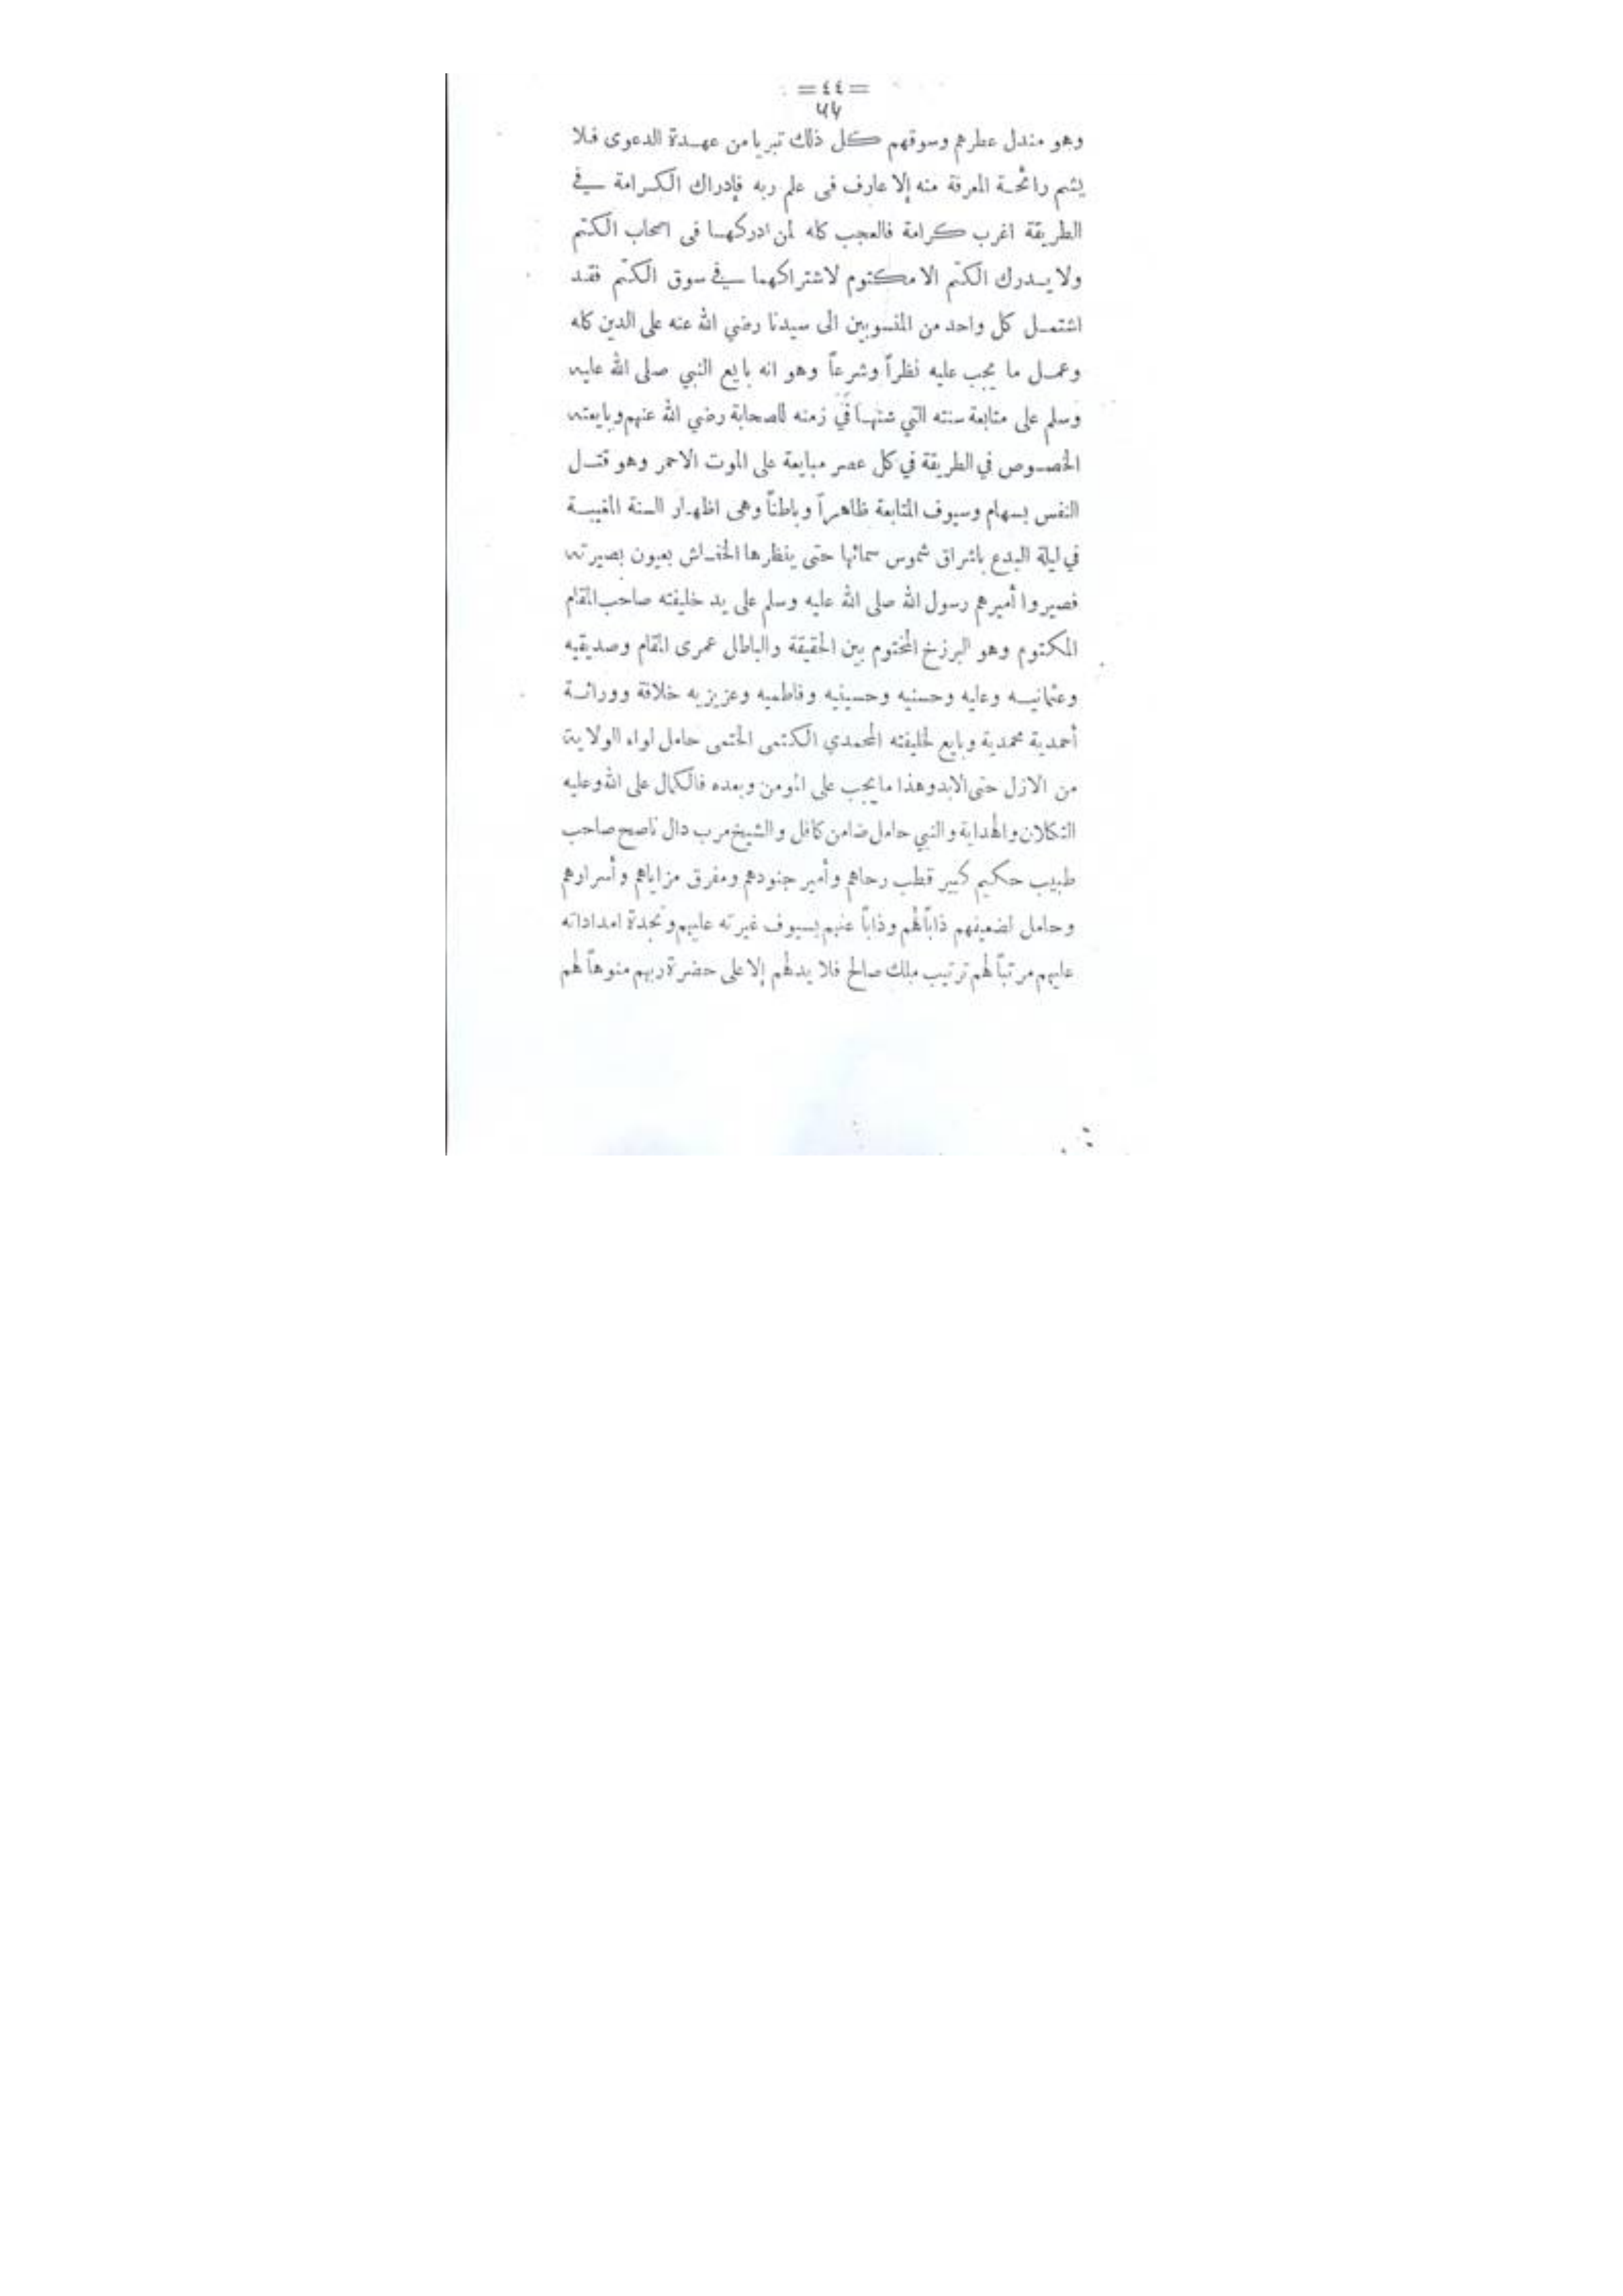 = ٤٤ =
وهو مندل عطرهم وسوقهم كل ذلك تبريا من عهدة الدعوى فلا
يشم رائحة المعرفة منه إلا عارف فى علم ربه فإدراك الكرامة في
الطريقة اغرب كرامة فالعجب كله لمن ادركها فى اصحاب الكتم
ولا يدرك الكتم الا مكتوم لاشتراكهما في سوق الكتم فقد
اشتمل كل واحد من المنسوبين الى سيدنا رضي الله عنه على الدين كله
وعمل ما يجب عليه نظراً وشرعاً وهو انه بايع النبي صلى الله عليه
وسلم على متابعة سنته التي سنها في زمنه للصحابة رضي الله عنهم وبايعته
الخصوص في الطريقة في كل عصر مبايعة على الموت الاحمر وهو قتل
النفس بسهام وسيوف المتابعة ظاهراً وباطناً وهى اظهار السنة المغيبة
في ليلة البدع باشراق شموس سمائها حتى ينظرها الخفاش بعيون بصيرته
فصيروا أميرهم رسول الله صلى الله عليه وسلم على يد خليفته صاحب المقام
المكتوم وهو البرزخ المختوم بين الحقيقة والباطل عمرى المقام وصديقيه
وعثمانيه وعليه وحسنيه وحسينيه وفاطميه وعزيزيه خلافة ووراثة
أحمدية محمدية وبايع لخليفته المحمدي الكتمى الختمى حامل لواء الولاية
من الازل حتى الابد وهذا ما يجب على المومن وبعده فالكمال على الله وعليه
التكلان والهداية والنبي حامل ضامن كافل والشيخ مرب دال ناصح صاحب
طبيب حكيم كبير قطب رحاهم وأمير جنودهم ومفرق مزاياهم وأسرارهم
وحامل لضعيفهم ذاباً لهم وذاباً عنهم بسيوف غيرته عليهم ونجدة امداداته
عليهم مرتباً لهم ترتيب ملك صالح فلا يدلهم إلا على حضرة ربهم منوهاً لهم